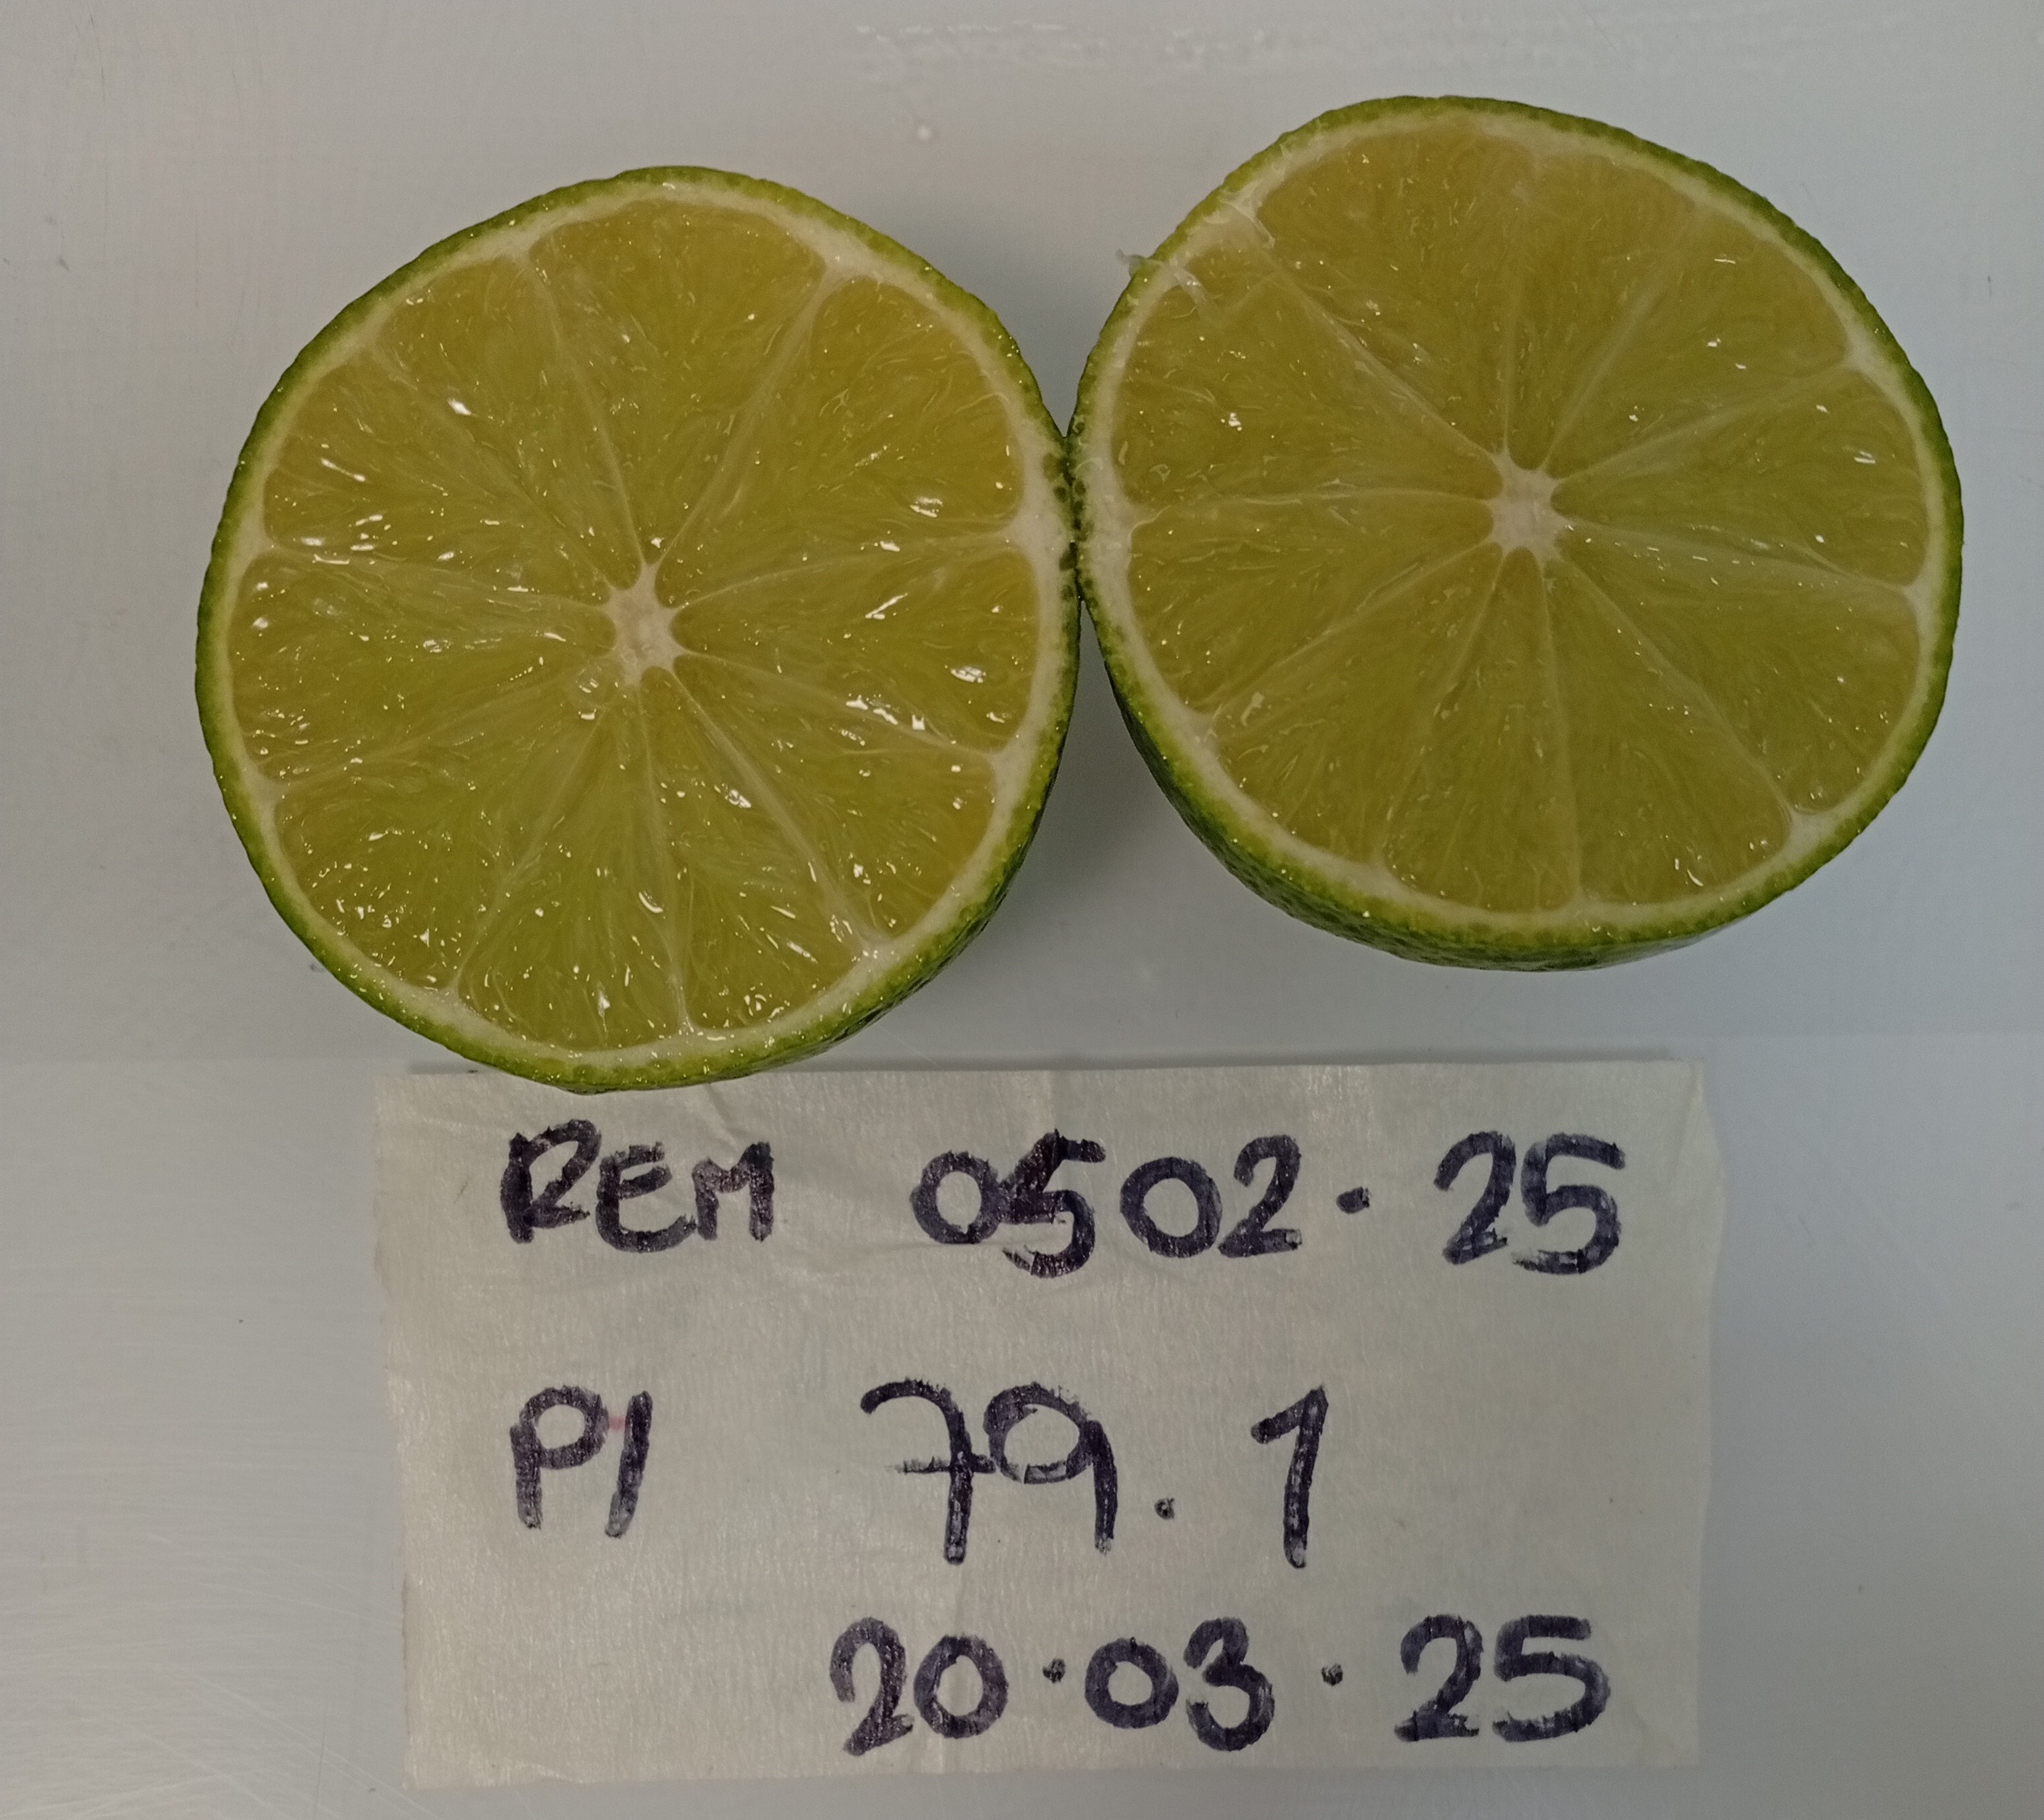 REM 0502.25
PI 79.1
20.03.25